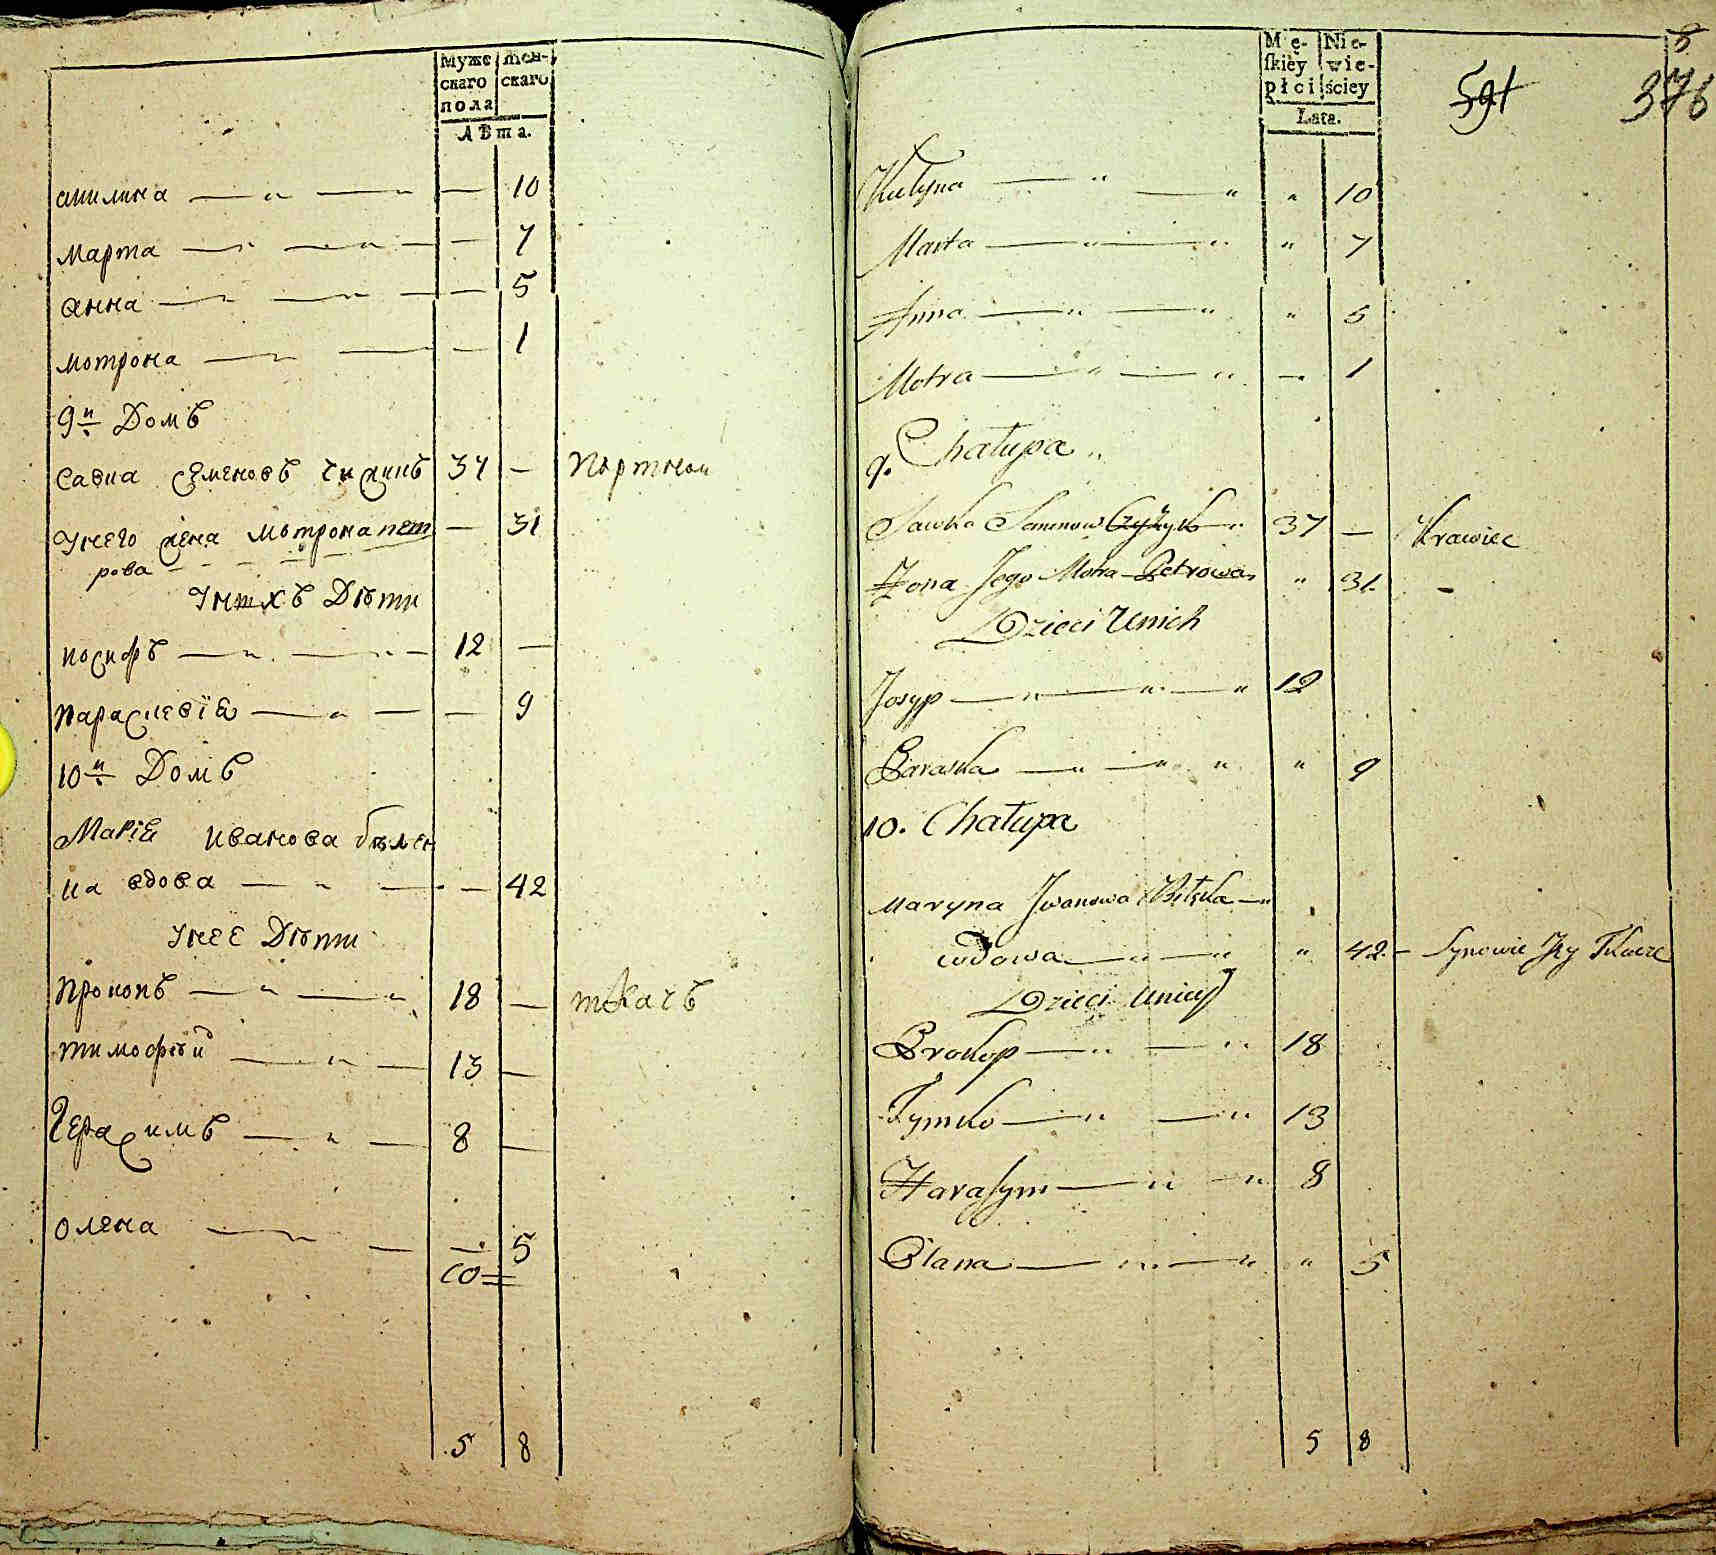 Муже Жен-
скаго скаго
пола
Лѣта.
акилина — „ — — 10
марта — „ — „ — — 7
анна — „ — „ — — 5
мотрона — „ — — 1
9й Домъ
савка семеновъ чижикъ 37 — портной
унего жена мотрона пет — 31
рова
унихъ Дѣти
иосифъ — „ — „ — 12 —
параскевія — „ — — 9
10й Домъ
Марія иванова билец
ка вдова — „ — — 42
унее Дѣти
прокопъ — „ — „ 18 — ткачъ
тимофѣй — „ — 13 —
Герасимъ — „ — 8 —
олена — „ — — 5
5 8
Mę- Nie-
ſkiey wie-
płci ściey
Lata.
8
591
376
Kulyna — „ — „ „ 10
Marta — „ — „ „ 7
Anna — „ — „ „ 5
Motra — „ — „ — 1
9. Chałupa „
Sawka Samenow Czyżyk „ 37 — Krawiec
Żona Jego Motra Petrowa „ 31. –
Dzieci Unich
Josyp — „ — „ — „ 12
Paraska — „ — „ „ „ 9
10. Chałupa
Maryna Jwanowa Bilęcka — „
wdowa — „ — „ „ 42. – Synowie Jey Tkacze
Dzieci Uniey
Prokop — „ — „ 18
Tymko — „ — „ 13
Harasym — „ — „ 8
Olana — „ — „ „ 5
5 8